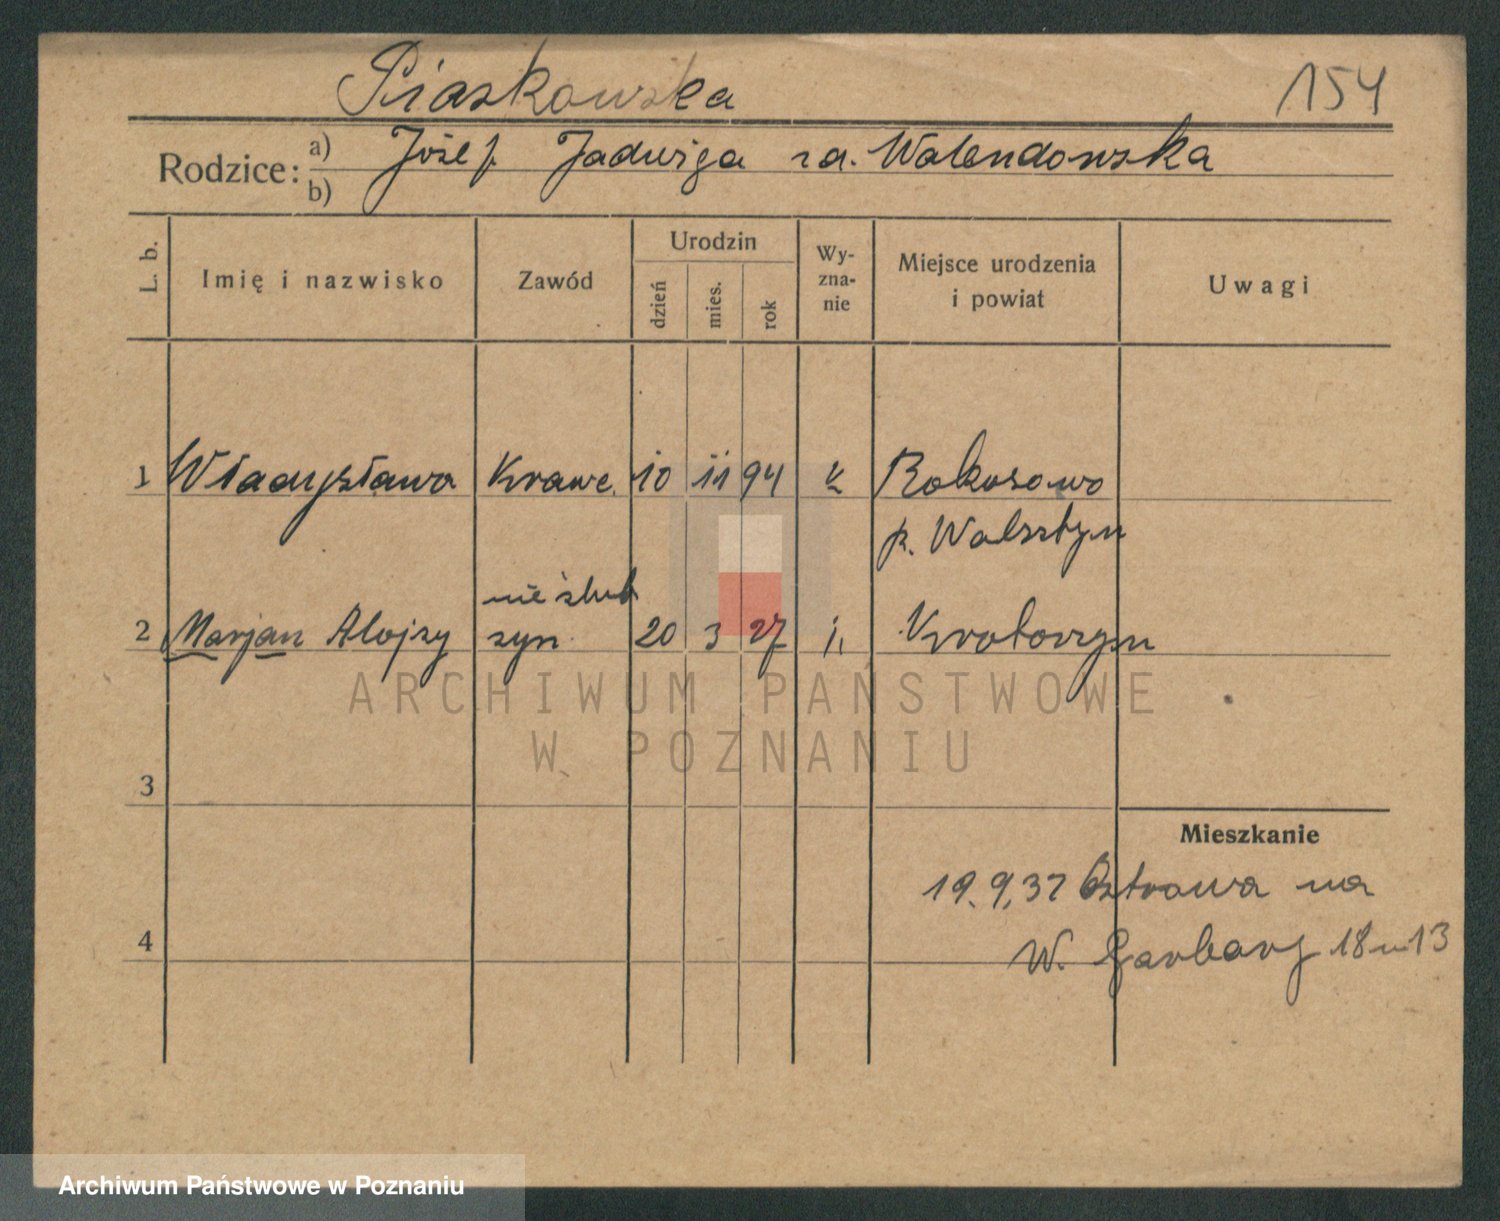 Piaskowska 154
Rodzice: a) Józef. Jadwiga zd. Walendowska
b)
L. b. Imię i nazwisko Zawód Urodzin dzień mies. rok Wy-zna-nie Miejsce urodzenia i powiat Uwagi
1 Władysława Krawc. 10 11 94 k Rokosowo
p. Wolsztyn
nieślub
2 Marjan Alojzy syn 20 3 27 j. Krotoszyn
ARCHIWUM PAŃSTWOWE
W POZNANIU
3
Mieszkanie
19.9.37 Ostrowa na
4
W. Garbary 18 m 13
Archiwum Państwowe w Poznaniu